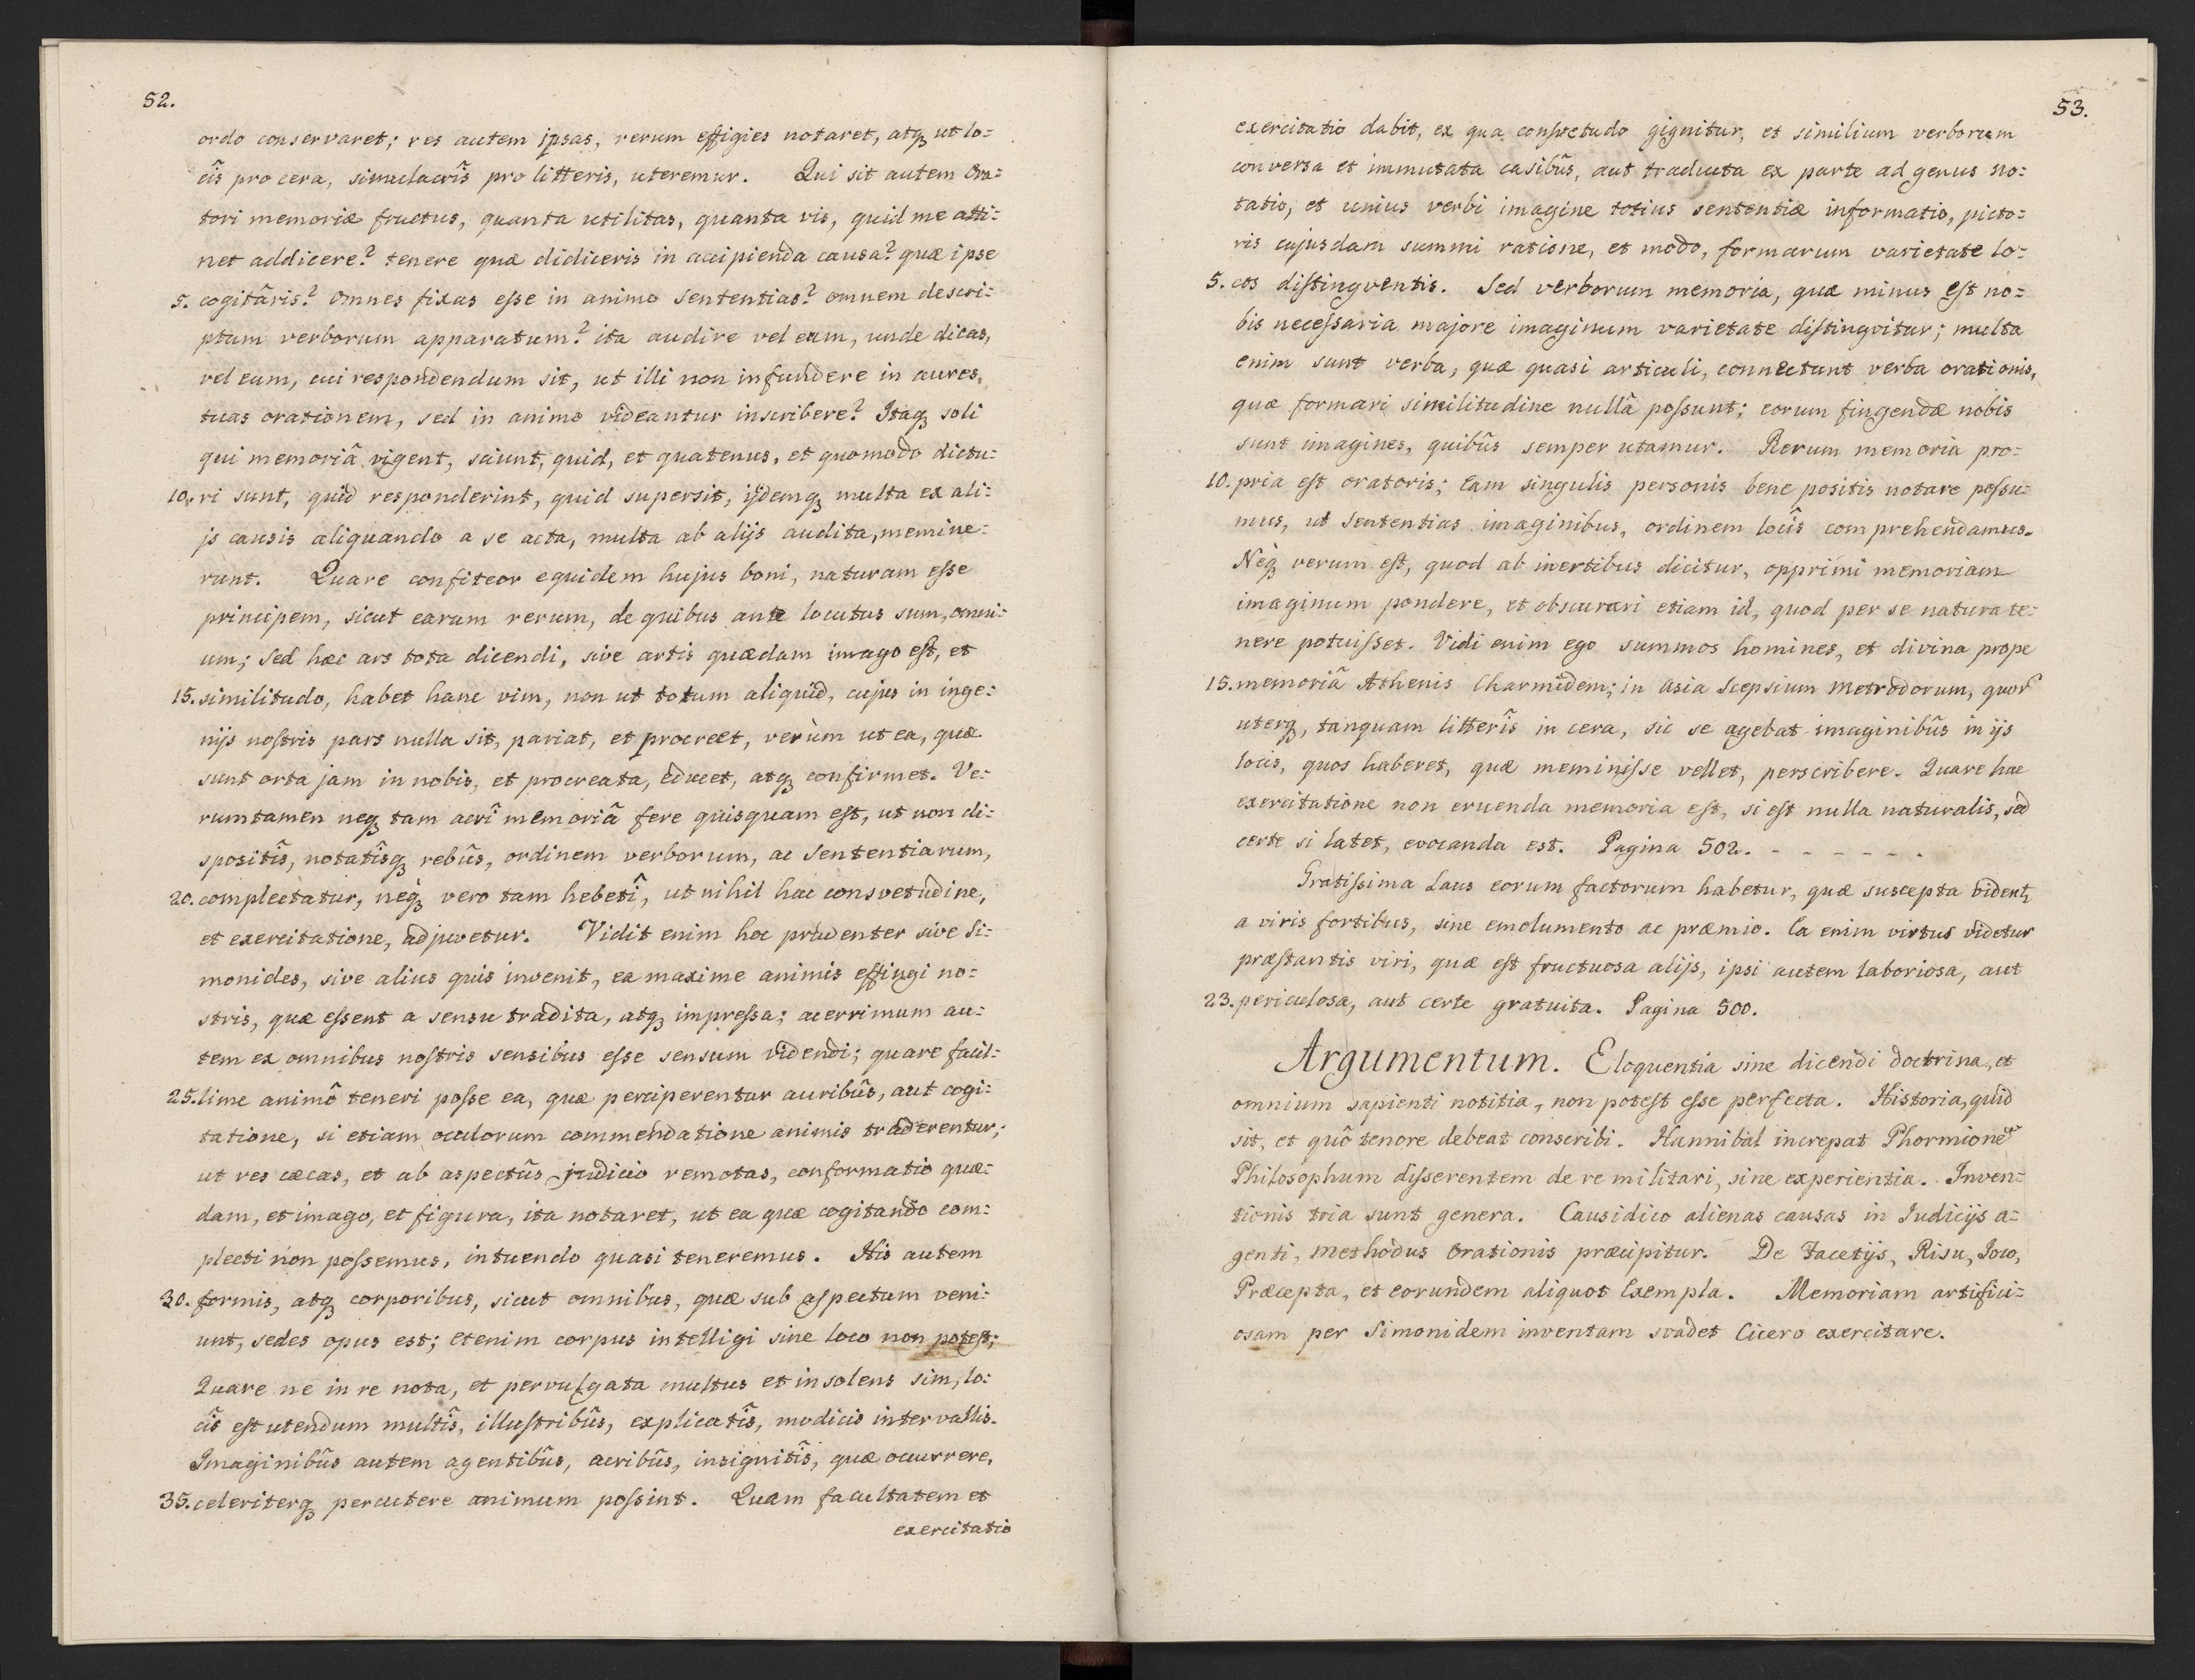 52.
ordo conservaret; res autem ipsas, rerum effigies notaret, atq₃ ut lo=
cîs pro cera, simulacrîs pro litteris, uteremur. Qui sit autem Ora=
tori memoriæ fructus, quanta utilitas, quanta vis, quid me atti=
net addicere? tenere quæ didiceris in accipienda causa? quæ ipse
5. cogitâris? Omnes fixas esse in animo Sententias? omnem descri=
ptum verborum apparatum? ita audire vel eum, unde dicas,
vel eum, cui respondendum sit, ut illi non infundere in aures,
tuas orationem, sed in animo videantur inscribere? Itaq₃ soli
qui memoriâ vigent, sciunt, quid, et quatenus, et quomodo dictu=
10. ri sunt, quid responderint, quid supersit, ijdemq₃ multa ex ali=
js causis aliquando a se acta, multa ab alijs audita, memine=
runt. Quare confiteor equidem hujus boni, naturam esse
principem, sicut earum rerum, de quibus ante locutus sum, omni=
um; Sed hæc ars tota dicendi, sive artis quædam imago est, et
15. similitudo, habet hanc vim, non ut totum aliquid, cujus in inge=
nijs nostris pars nulla sit, pariat, et procreet, verùm ut ea, quæ
sunt orta jam in nobis, et procreata, educet, atq₃ confirmet. Ve=
rumtamen neq₃ tam acrî memoriâ fere quisquam est, ut non di=
spositîs, notatîsq₃ rebûs, ordinem verborum, ac Sententiarum,
20. complectatur, neq̀₃ vero tam hebetî, ut nihil hac consvetudine,
et exercitatione, adjuvetur. Vidit enim hoc prudenter sive Si=
monides, sive alius quis invenit, ea maxime animis effingi no=
stris, quæ essent a sensu tradita, atq₃ impressa; acerrimum au=
tem ex omnibus nostris sensibus esse sensum videndi; quare facil=
25. lime animô teneri posse ea, quæ perciperentur auribûs, aut cogi=
tatione, si etiam oculorum commendatione animis traderentur;
ut res cæcas, et ab aspectûs judicio remotas, conformatio quæ=
dam, et imago, et figura, ita notaret, ut ea quæ cogitando com=
plecti non possemus, intuendo quasi teneremus. His autem
30. formis, atq₃ corporibus, sicut omnibus, quæ sub aspectum veni=
unt, sedes opus est; etenim corpus intelligi sine loco non potest;
Quare ne in re nota, et pervulgata multus et insolens sim, lo=
cîs est utendum multîs, illustribûs, explicatîs, modicis intervallis.
Imaginibûs autem agentibûs, acribûs, insignitîs, quæ occurrere,
35. celeriterq₃ percutere animum possint. Quam facultatem et
exercitatio
53.
exercitatio dabit, ex qua consvetudo gignitur, et similium verborum
conversa et immutata casibûs, aut traducta ex parte ad genus no=
tatio, et unius verbi imagine totius sententiæ informatio, picto=
ris cujusdam summi ratione, et modo, formarum varietate lo=
5. cos distingventis. Sed verborum memoria, quæ minus est no=
bis necessaria majore imaginum varietate distingvitur; multa
enim sunt verba, quæ quasi articuli, connectunt verba orationis,
quæ formari similitudine nullâ possunt; eorum fingendæ nobis
sunt imagines, quibûs semper utamur. Rerum memoria pro=
10. pria est oratoris; Eam singulis personis bene positis notare possu=
mus, ut Sententias imaginibus, ordinem locîs comprehendamus.
Neq̀₃ verum est, quod ab inertibus dicitur, opprimi memoriam
imaginum pondere, et obscurari etiam id, quod per se natura te=
nere potuisset. Vidi enim ego summos homines, et divina prope
15. memoriâ Athenis Charmidem; in Asia Scepsium Metrodorum, quor
uterq₃, tanquam litterîs in cera, sic se agebat imaginibûs in ijs
locis, quos haberet, quæ meminisse vellet, perscribere. Quare hac
exercitatione non eruenda memoria est, si est nulla naturalis, sed
certe si latet, evocanda est. Pagina 502. - - - - - - .
Gratissima Laus eorum factorum habetur, quæ suscepta vident₂
a viris fortibus, sine emolumento ac præmio. Ea enim virtus videtur
præstantis viri, quæ est fructuosa alijs, ipsi autem laboriosa, aut
23. periculosa, aut certe gratuita. Pagina 500.
Argumentum. Eloquentia sine dicendi doctrina, et
omnium sapienti notitia, non potest esse perfecta. Historia, quid
sit, et quô tenore debeat conscribi. Hannibal increpat Phormionem
Philosophum disserentem de re militari, sine experientia. Inven=
tionis tria sunt genera. Causidico alienas causas in Judicijs a=
genti, methodus Orationis præcipitur. De Facetijs, Risu, Joco,
Præcepta, et eorundem aliquot Exempla. Memoriam artifici=
osam per Simonidem inventam svadet Cicero exercitare.